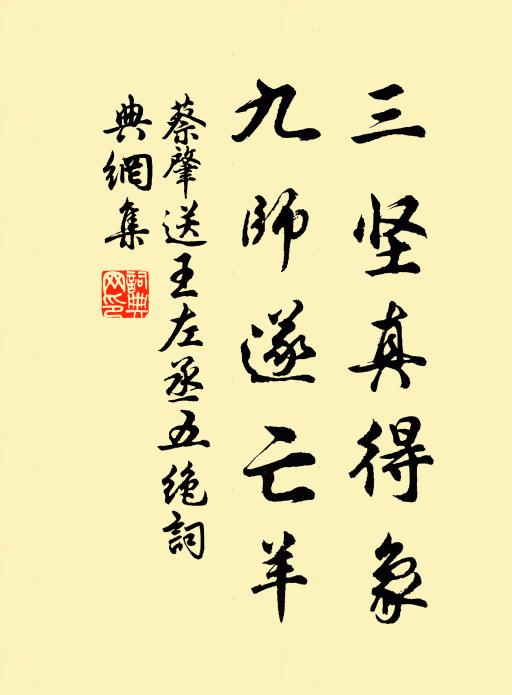 三坚真得象
九師遂亡羊
蔡肇送王左丞五绝詞
典網集
詞典網印